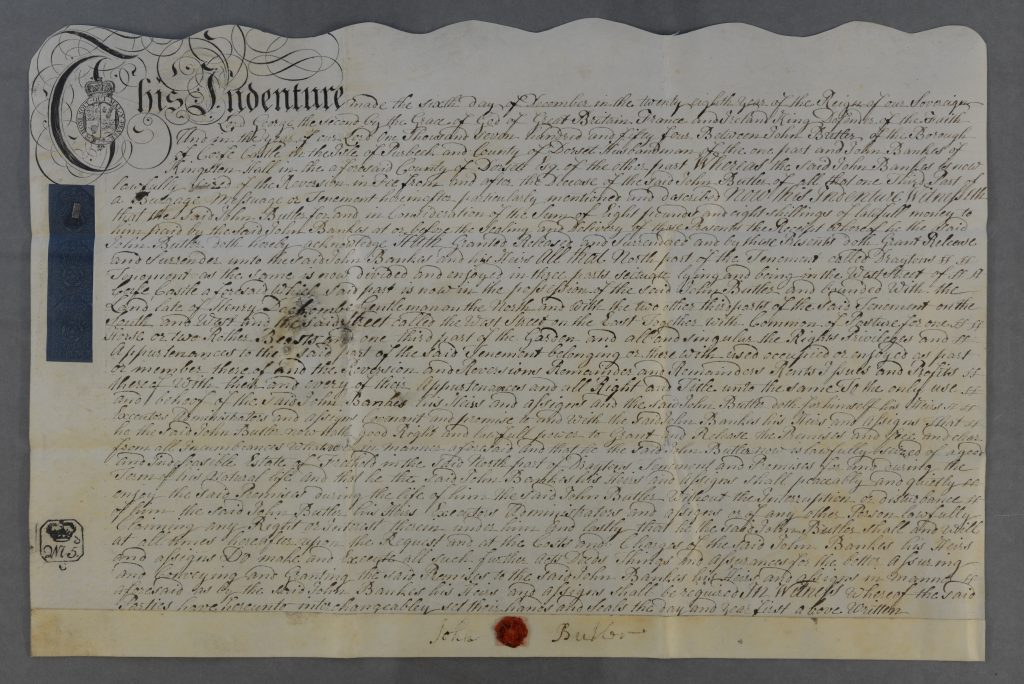 This Indenture made the sixth day of December in the twenty eighth year of the Reign of our Sovereign
Lord George the second by the Grace of God of Great Britain France and Ireland King Defender of the Faith
And in the year of our Lord one Thousand Seven hundred and fifty four Between John Butler of the Borough
of Corfe Castle in the Isle of Purbeck and County of Dorset Husbandman of the one part and John Bankes of
Kingston Hall in the aforesaid County of Dorset Esq of the other part Whereas the said John Bankes is now
lawfully seized of the Reversion in Fee from and after the Decease of the said John Butler of all that one third Part of
a Burgage Messuage or Tenement hereinafter particularly mentioned and described Now this Indenture Witnesseth
that the said John Butler for and in Consideration of the Sum of Eight pounds and eight shillings of lawfull money to
him paid by the said John Bankes at or before the Sealing and Delivery of these Presents the Receipt whereof he the said
John Butler doth hereby acknowledge Hath Granted Released and Surrendred and by these Presents doth Grant Release
and Surrender unto the said John Bankes and his Heirs All that North part of the Tenement called Draytons
Tenement as the Same is now divided and enjoyed in three parts seituate lying and being in the West Street of
Corfe Castle aforesaid which said part is now in the possession of the said John Butler and bounded With the
Land late of Henry Gentleman on the North and with the two other third parts of the said Tenement on the
South and West and the said Street called the West Street on the East Together with Common of Pasture for one
Horse or two Rother Beasts and one third part of the Garden and all and singular the Rights Priviledges and
Appurtenances to the said part of the said Tenement belonging or therewith used occupied or enjoyed as part
or member thereof and the Reversion and Reversions Remainder and Remainders Rents Issues and Profits
thereof With their and every of their Appurtenances and all Right and Title unto the same To the only use
and behoof of the said John Bankes his Heirs and assigns and the said John Butler doth for himself his Heirs
Executors Administrators and assigns Covenant and promise to and with the said John Bankes his Heirs and assigns that
he the said John Butler now hath good Right and lawfull power to Grant and Release the Premises and free and clear
from all Incumbrances whatsoever in manner aforesaid and that he the said John Butler now is lawfully seized of a good
and Indefeasible Estate of Freehold in the said North part of Draytons Tenement and Premises for and during the
Term of his Natural life and that he the said John Bankes his Heirs and assigns shall peaceably and quietly
enjoy the said Premises during the life of him the said John Butler Without the Interruption or disturbance
of him the said John Butler his Heirs Executors Administrators and assigns or of any other Person lawfully
Claiming any Right or Interest therein under him and lastly that he the said John Butler shall and will
at all times hereafter upon the Request and at the Costs and Charges of the said John Bankes his Heirs
and assigns Do make and Execute all such further Deeds Things and assurances for the better assuring
and Conveying and Granting the said Premises to the said John Bankes his Heirs and assigns in manner
aforesaid as by the said John Bankes his Heirs and assigns shall be required In Witness whereof the said
Parties have hereunto interchangeably set their hands and seals the day and year first above Written
John Butler